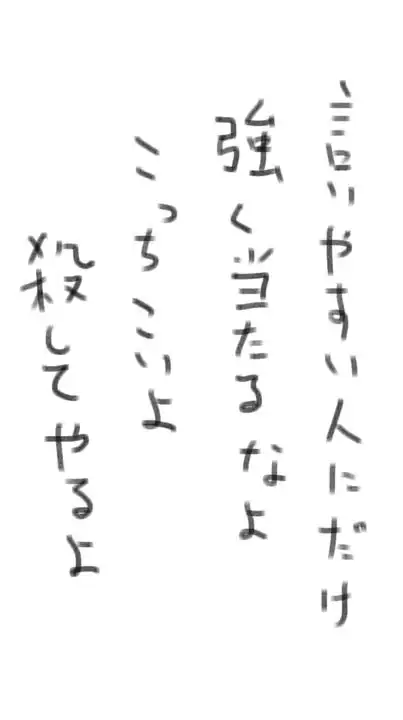 言いやすい人にだけ
強く当たるなよ
こっちこいよ
殺してやるよ